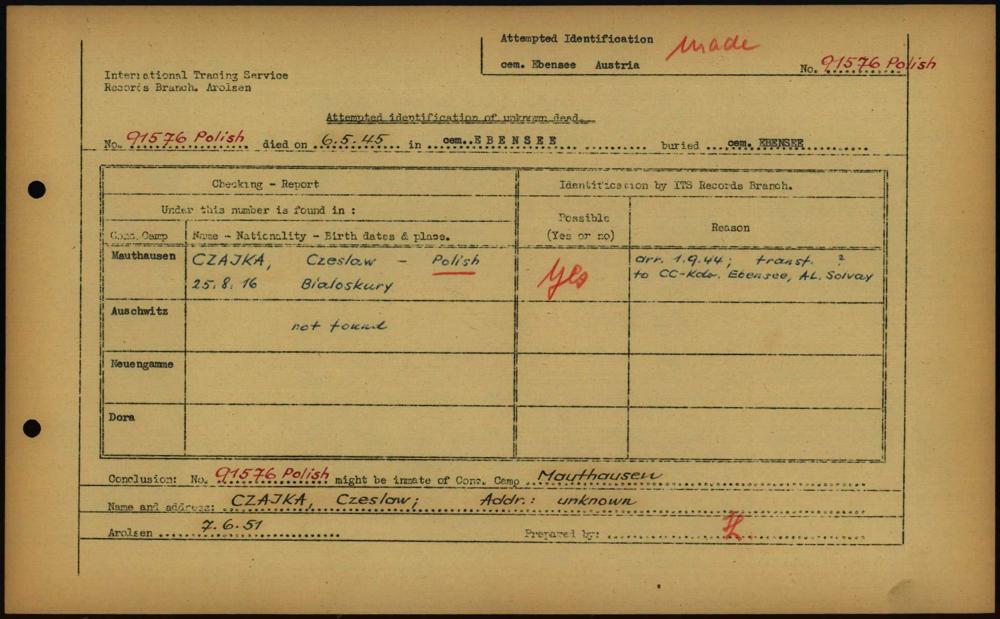 Attempted Identification made
cem. Ebensee Austria
No. 91576 Polish
International Tracing Service
Records Branch. Arolsen
Attempted identification of unknown dead.
No. 91576 Polish died on 6.5.45 in cem. EBENSEE buried cem. EBENSEE
Checking - Report
Identification by ITS Records Branch.
Under this number is found in :
Possible
(Yes or no)
Reason
Conc. Camp Name - Nationality - Birth dates & place.
Mauthausen CZAJKA, Czeslaw - Polish yes arr. 1.9.44; transf. ?
25.8.16 Bialoskury to CC-Kdo. Ebensee, AL. Solvay
Auschwitz
not found
Neuengamme
Dora
Conclusion: No. 91576 Polish might be inmate of Conc. Camp Mauthausen
Name and address: CZAJKA, Czeslaw; Addr.: unknown
Arolsen 7.6.51 Prepared by: